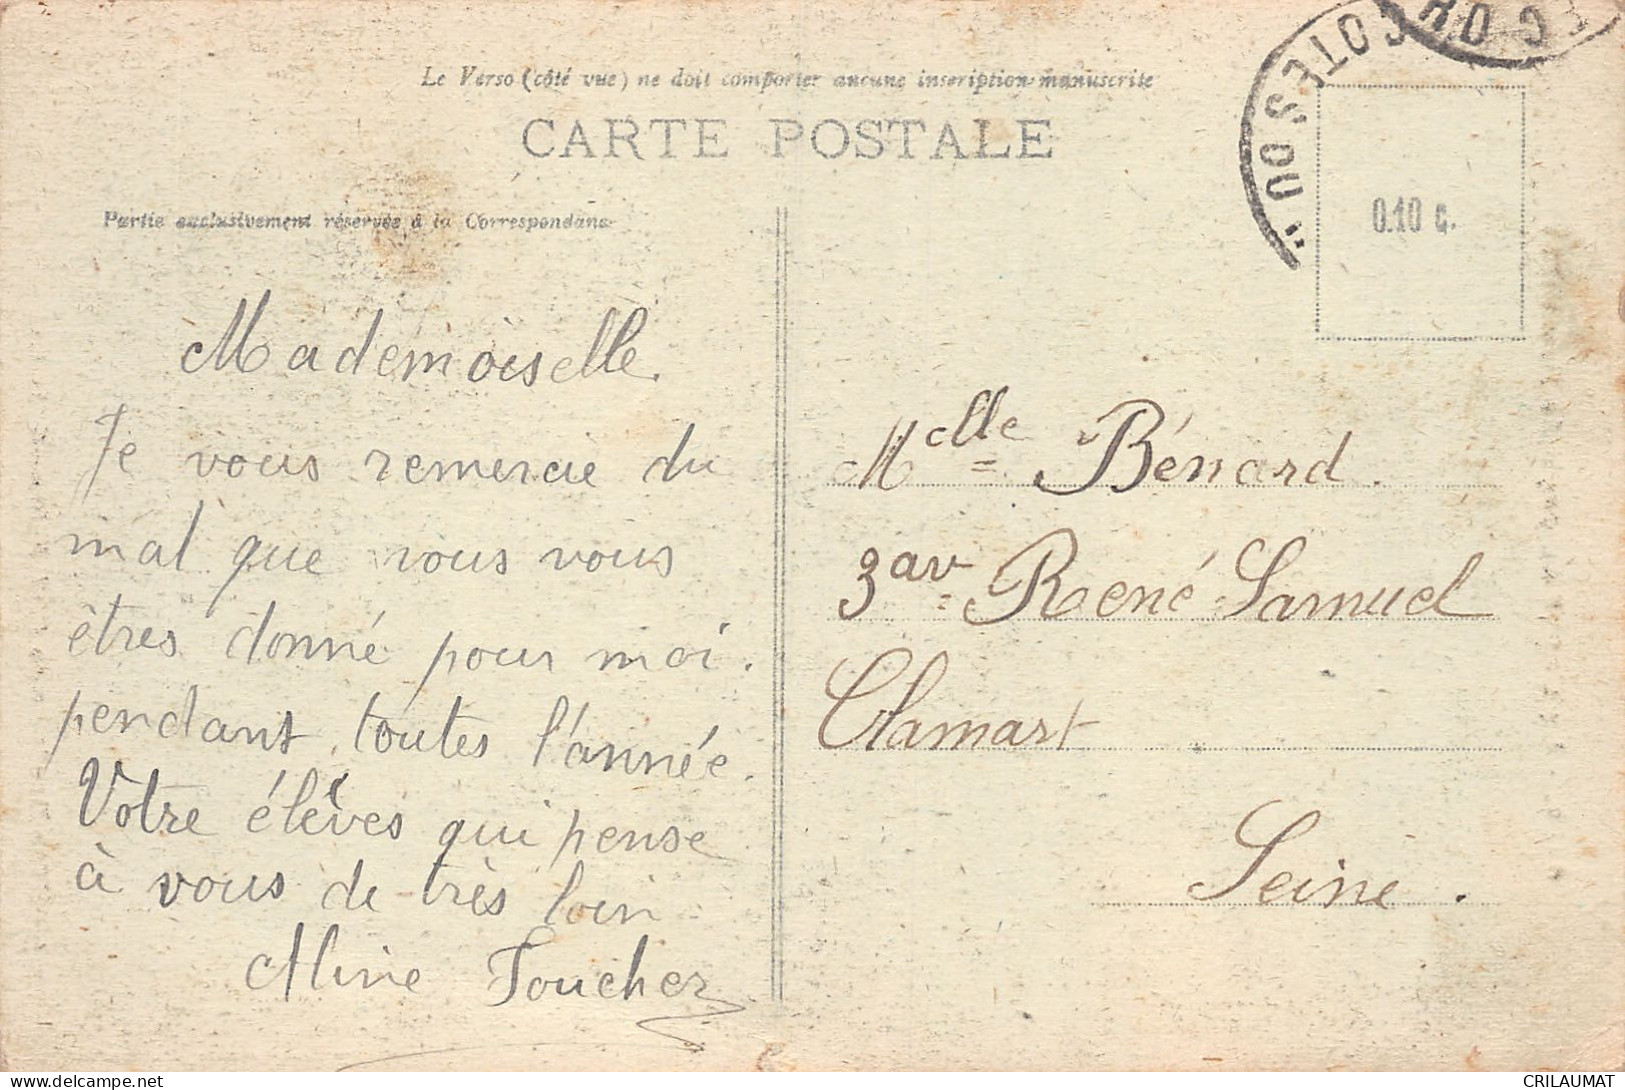 Le Verso (côté vue) ne doit comporter aucune inscription manuscrite
CARTE POSTALE
Partie exclusivement réservée à la Correspondance
COTES DU N
0.10 c.
Mademoiselle.
Je vous remercie du
mal que vous vous
êtres donné pour moi.
pendant toutes l'année.
Votre élèves qui pense
à vous de très loin
Aline Foucher
Melle Bénard.
3 av René Samuel
Clamart
Seine.
CRILAUMAT